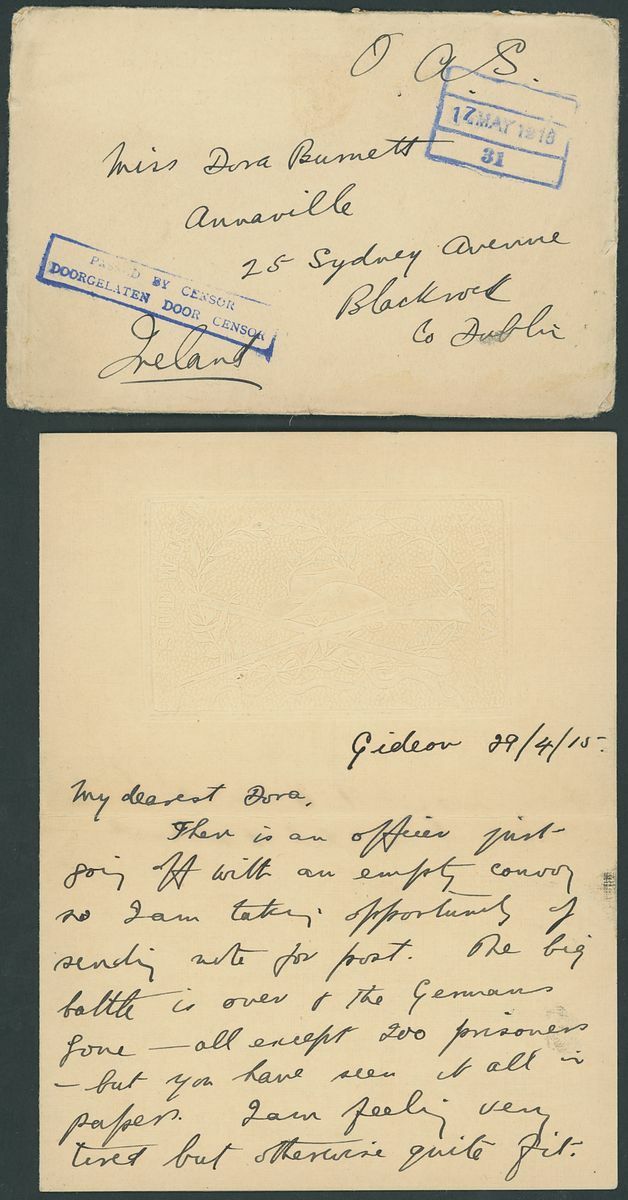 O A.S.
17 MAY 1915
31
Miss Dora Burnett
Annaville
25 Sydney Avenue
Blackrock
Co Dublin
PASSED BY CENSOR
DOORGELATEN DOOR CENSOR
Ireland
Gideon 29/4/15.
My dearest Dora,
There is an officer just
going off with an empty convoy
so I am taking opportunity of
sending note for post. The big
battle is over & the Germans
gone — all except 200 prisoners
- but you have seen it all in
papers. I am feeling very
tired but otherwise quite fit.